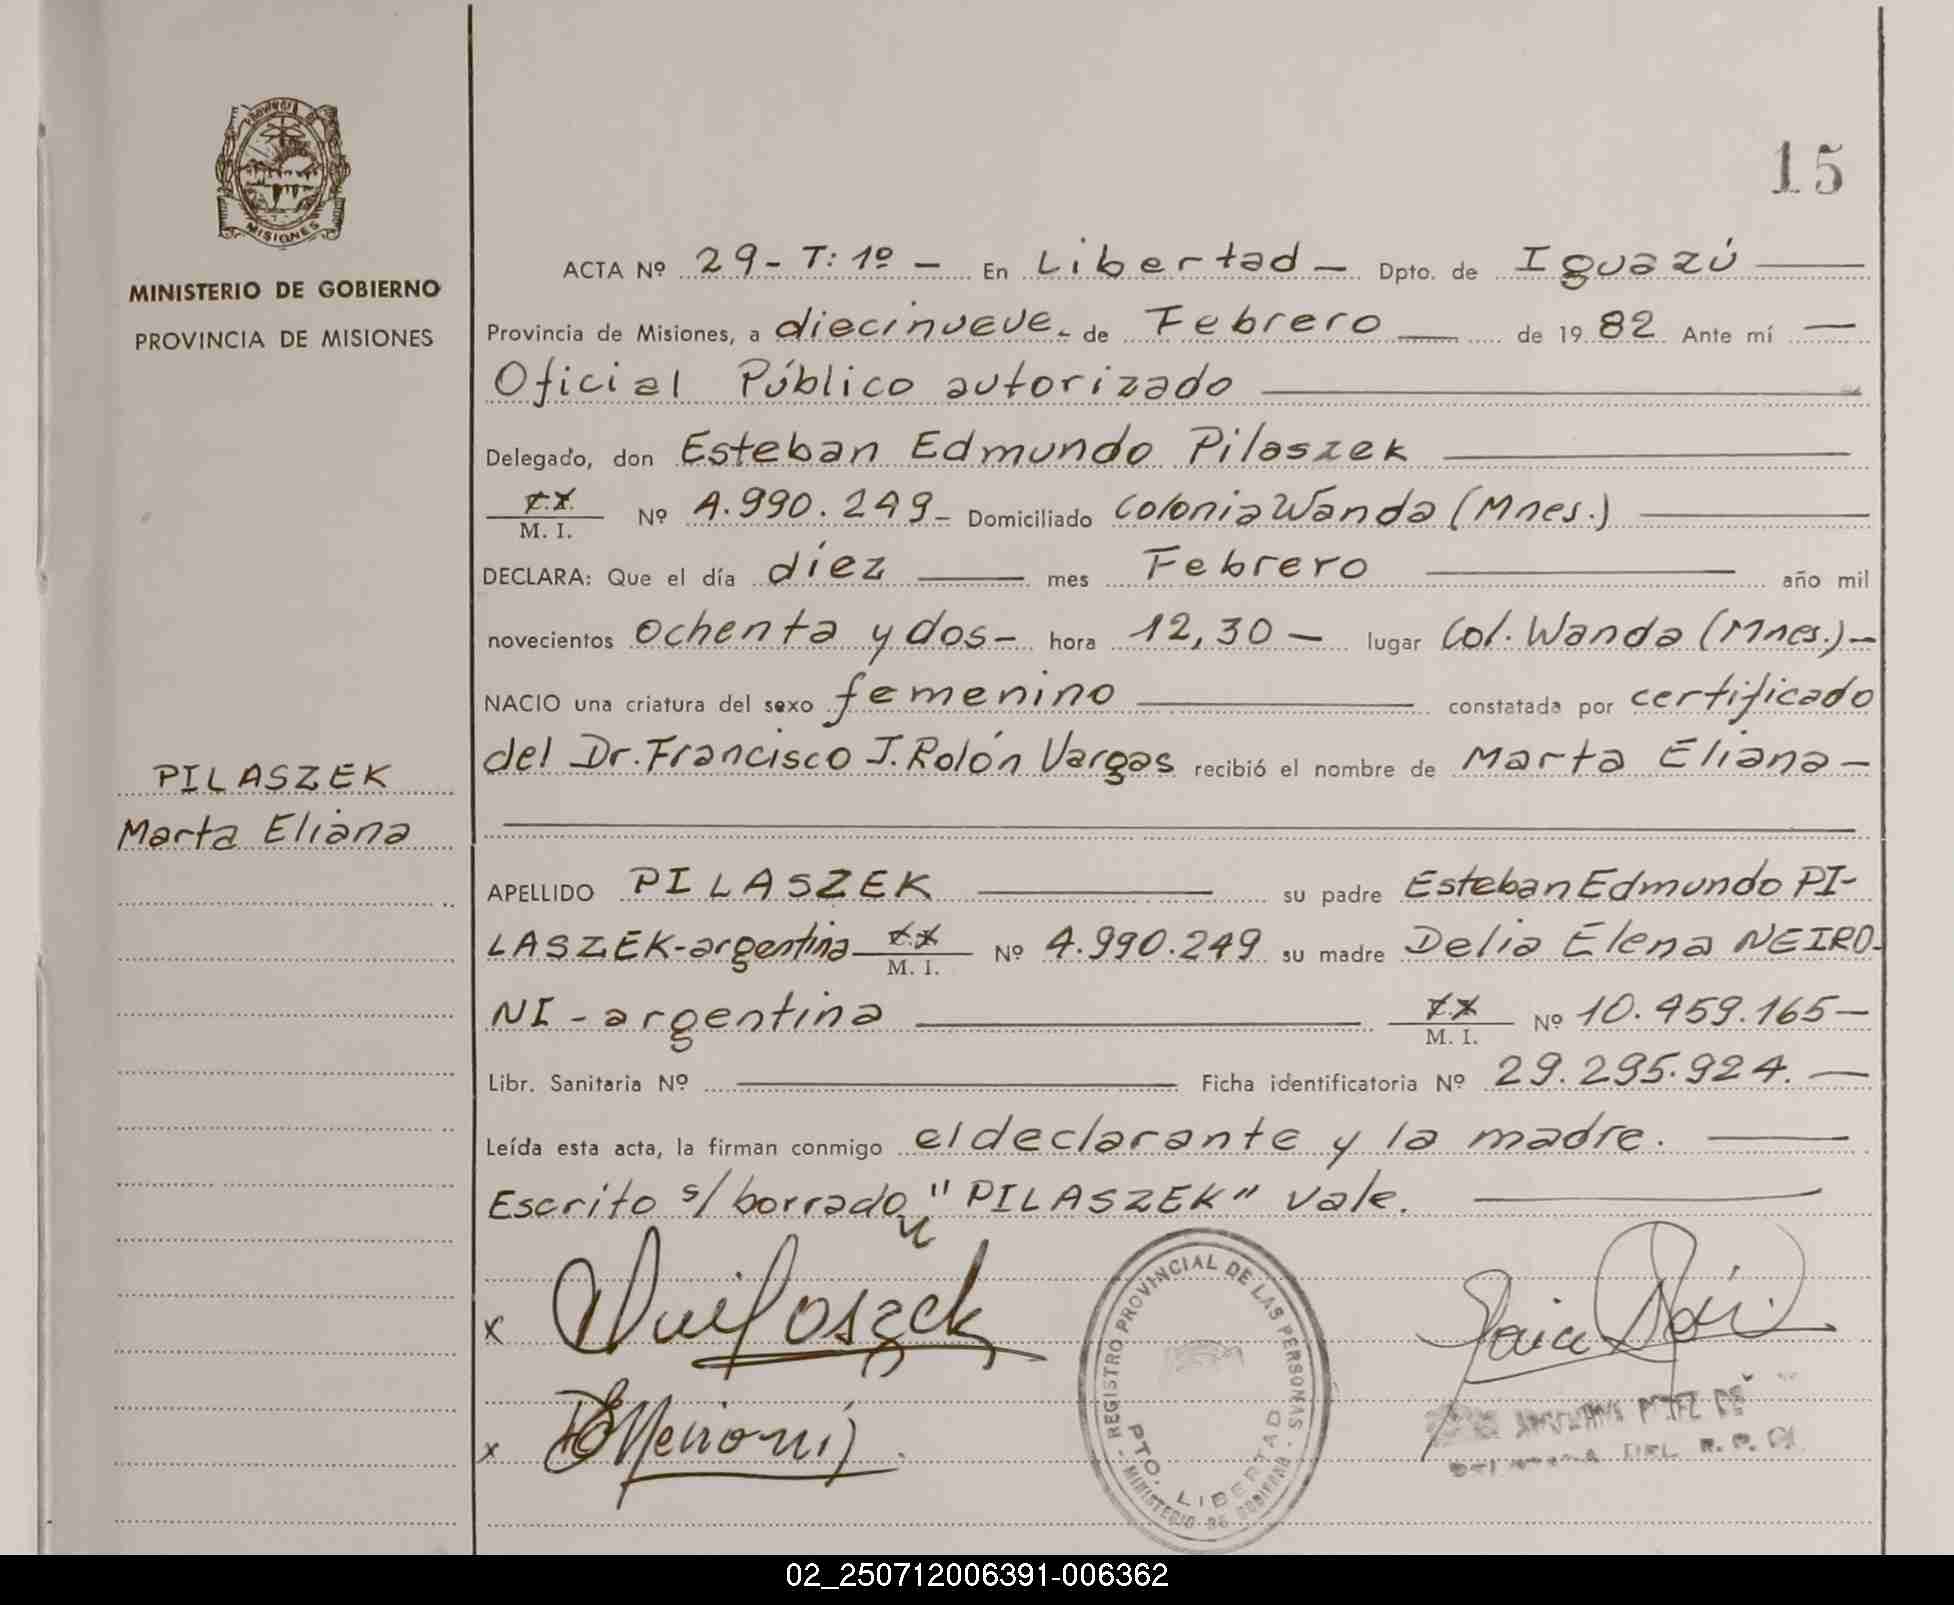 PROVINCIA DE
MISIONES
MINISTERIO DE GOBIERNO
PROVINCIA DE MISIONES
PILASZEK
Marta Eliana
15
ACTA Nº 29- T: 1º - En Libertad - Dpto. de Iguazú
Provincia de Misiones, a diecinueve.- de Febrero de 19 82 Ante mí
Oficial Público autorizado
Delegado, don Esteban Edmundo Pilaszek
M. I. Nº 4.990.249- Domiciliado Colonia Wanda (Mnes.)
DECLARA: Que el día díez mes Febrero año mil
novecientos ochenta y dos- hora 12,30 - lugar Col. Wanda (Mnes.)-
NACIO una criatura del sexo femenino constatada por certificado
del Dr. Francisco J. Rolón Vargas recibió el nombre de Marta Eliana -
APELLIDO PILASZEK su padre Esteban Edmundo PI-
LASZEK-argentina M. I. Nº 4.990.249 su madre Delia Elena NEIRO-
NI - argentina M. I. Nº 10.459.165-
Libr. Sanitaria Nº Ficha identificatoria Nº 29.295.924. -
Leída esta acta, la firman conmigo el declarante y la madre.
Escrito s/ borrado "PILASZEK" vale.
x
x
- REGISTRO PROVINCIAL DE LAS PERSONAS -
PTO. LIBERTAD
MINISTERIO DE GOBIERNO
DEL R. P. P.
02_250712006391-006362